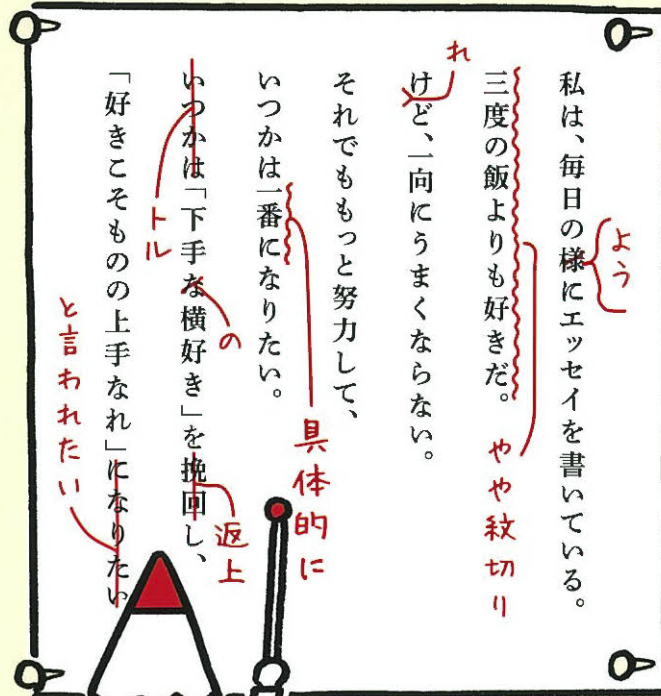 私は、毎日の様にエッセイを書いている。
よう
三度の飯よりも好きだ。
やや紋切り
けど、一向にうまくならない。
れ
それでももっと努力して、
いつかは一番になりたい。
具体的に
いつかは「下手な横好き」を挽回し、
トル
の
返上
「好きこそものの上手なれ」になりたい
と言われたい